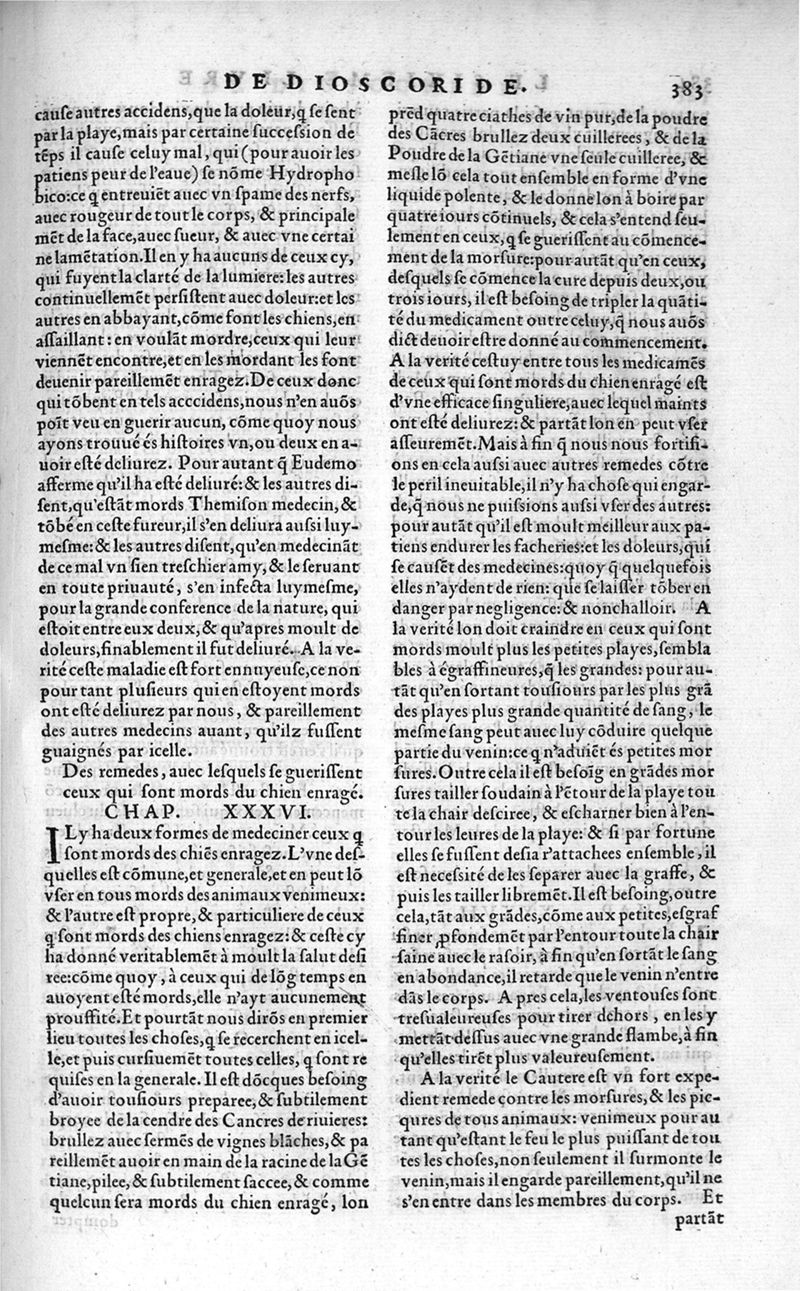 DE DIOSCORIDE.
383
cauſe autres accidens,que la doleur,q̃ ſe ſent
par la playe,mais par certaine ſucceſsion de
tẽps il cauſe celuy mal, qui (pour auoir les
patiens peur de l'eaue) ſe nõme Hydropho
bico:ce q̃ entreuiẽt auec vn ſpame des nerfs,
auec rougeur de tout le corps, & principale
mẽt de la face,auec ſueur, & auec vne certai
ne lamẽtation.Il en y ha aucuns de ceux cy,
qui fuyent la clarté de la lumiere:les autres
continuellemẽt perſiſtent auec doleur:et les
autres en abbayant,cõme font les chiens,en
aſſaillant : en voulãt mordre,ceux qui leur
viennẽt encontre,et en les mordant les font
deuenir pareillemẽt enragez.De ceux donc
qui tõbent en tels acccidens,nous n'en auõs
poĩt veu en guerir aucun, cõme quoy nous
ayons trouué és hiſtoires vn,ou deux en a-
uoir eſté deliurez. Pour autant q̃ Eudemo
afferme qu'il ha eſté deliuré:& les autres di-
ſent,qu'eſtãt mords Themiſon medecin,&
tõbé en ceſte fureur,il s'en deliura auſsi luy-
meſme:& les autres diſent,qu'en medecinãt
de ce mal vn ſien treſchier amy,& le ſeruant
en toute priuauté, s'en infecta luymeſme,
pour la grande conference de la nature, qui
eſtoit entre eux deux,& qu'apres moult de
doleurs,finablement il fut deliuré. A la ve-
rité ceſte maladie eſt fort ennuyeuſe,ce non
pour tant pluſieurs qui en eſtoyent mords
ont eſté deliurez par nous, & pareillement
des autres medecins auant, qu'ilz fuſſent
guaignés par icelle.
Des remedes, auec leſquels ſe gueriſſent
ceux qui ſont mords du chien enragé.
CHAP. XXXVI.
IL y ha deux formes de medeciner ceux q̃
ſont mords des chiẽs enragez.L'vne deſ-
quelles eſt cõmune,et generale,et en peut lõ
vſer en tous mords des animaux venimeux:
& l'autre eſt propre,& particuliere de ceux
q̃ ſont mords des chiens enragez:& ceſte cy
ha donné veritablemẽt à moult la ſalut deſi
ree:cõme quoy, à ceux qui de lõg temps en
auoyent eſté mords,elle n'ayt aucunement
prouffité.Et pourtãt nous dirõs en premier
lieu toutes les choſes,q̃ ſe recerchent en icel-
le,et puis curſiuemẽt toutes celles, q̃ ſont re
quiſes en la generale. Il eſt dõcques beſoing
d'auoir touſiours preparee,& ſubtilement
broyee de la cendre des Cancres de riuieres:
brullez auec ſermẽs de vignes blãches,& pa
reillemẽt auoir en main de la racine de la Gẽ
tiane,pilee,& ſubtilement ſaccee,& comme
quelcun ſera mords du chien enragé, lon
prẽd quatre ciathes de vin pur,de la poudre
des Cãcres brullez deux cuillerees, & de la
Poudre de la Gẽtiane vne ſeule cuilleree, &
meſle lõ cela tout enſemble en forme d'vne
liquide polente, & le donne lon à boire par
quatre iours cõtinuels, & cela s'entend ſeu-
lement en ceux,q̃ ſe gueriſſent au cõmence-
ment de la morſure:pour autãt qu'en ceux,
deſquels ſe cõmence la cure depuis deux,ou
trois iours, il eſt beſoing de tripler la quãti-
té du medicament outre celuy,q̃ nous auõs
dict deuoir eſtre donné au commencement.
A la verité ceſtuy entre tous les medicamẽs
de ceux qui ſont mords du chien enragé eſt
d'vne efficace ſinguliere,auec lequel maints
ont eſté deliurez: & partãt lon en peut vſer
aſſeuremẽt. Mais à fin q̃ nous nous fortifi-
ons en cela auſsi auec autres remedes cõtre
le peril ineuitable,il n'y ha choſe qui engar-
de,q̃ nous ne puiſsions auſsi vſer des autres:
pour autãt qu'il eſt moult meilleur aux pa-
tiens endurer les facheries:et les doleurs,qui
ſe cauſẽt des medecines:quoy q̃ quelquefois
elles n'aydent de rien: que ſe laiſſer tõber en
danger par negligence:& nonchalloir. A
la verité lon doit craindre en ceux qui ſont
mords moult plus les petites playes,ſembla
bles à égraffineures,q̃ les grandes: pour au-
tãt qu'en ſortant touſiours par les plus grã
des playes plus grande quantité de ſang, le
meſme ſang peut auec luy cõduire quelque
partie du venin:ce q̃ n'aduiẽt és petites mor
ſures.Outre cela il eſt beſoĩg en grãdes mor
ſures tailler ſoudain à l'ẽtour de la playe tou
te la chair deſciree, & eſcharner bien à l'en-
tour les leures de la playe: & ſi par fortune
elles ſe fuſſent deſia r'attachees enſemble, il
eſt neceſsité de les ſeparer auec la graffe, &
puis les tailler libremẽt.Il eſt beſoing,outre
cela,tãt aux grãdes,cõme aux petites,eſgraf
finer ꝓfondemẽt par l'entour toute la chair
ſaine auec le raſoir, à fin qu'en ſortãt le ſang
en abondance,il retarde que le venin n'entre
dãs le corps. A pres cela,les ventouſes ſont
treſualeureuſes pour tirer dehors, en les y
mettãt deſſus auec vne grande flambe,à fin
qu'elles tirẽt plus valeureuſement.
A la verité le Cautere eſt vn fort expe-
dient remede contre les morſures,& les pic-
qures de tous animaux: venimeux pour au
tant qu'eſtant le feu le plus puiſſant de tou
tes les choſes,non ſeulement il ſurmonte le
venin,mais il engarde pareillement,qu'il ne
s'en entre dans les membres du corps. Et
partãt